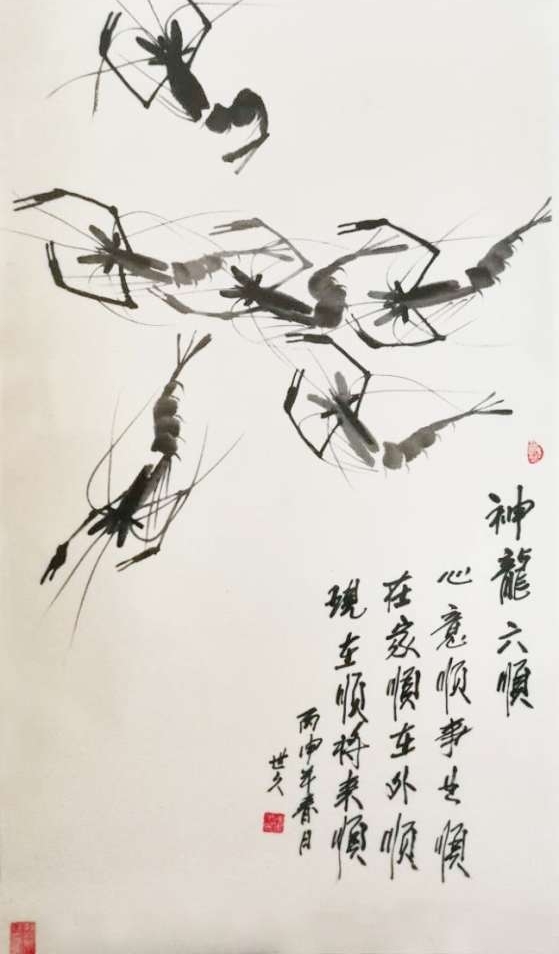 神龍六順
心意順事其順
在家順在外順
現在順將来順
丙申年春月
世久